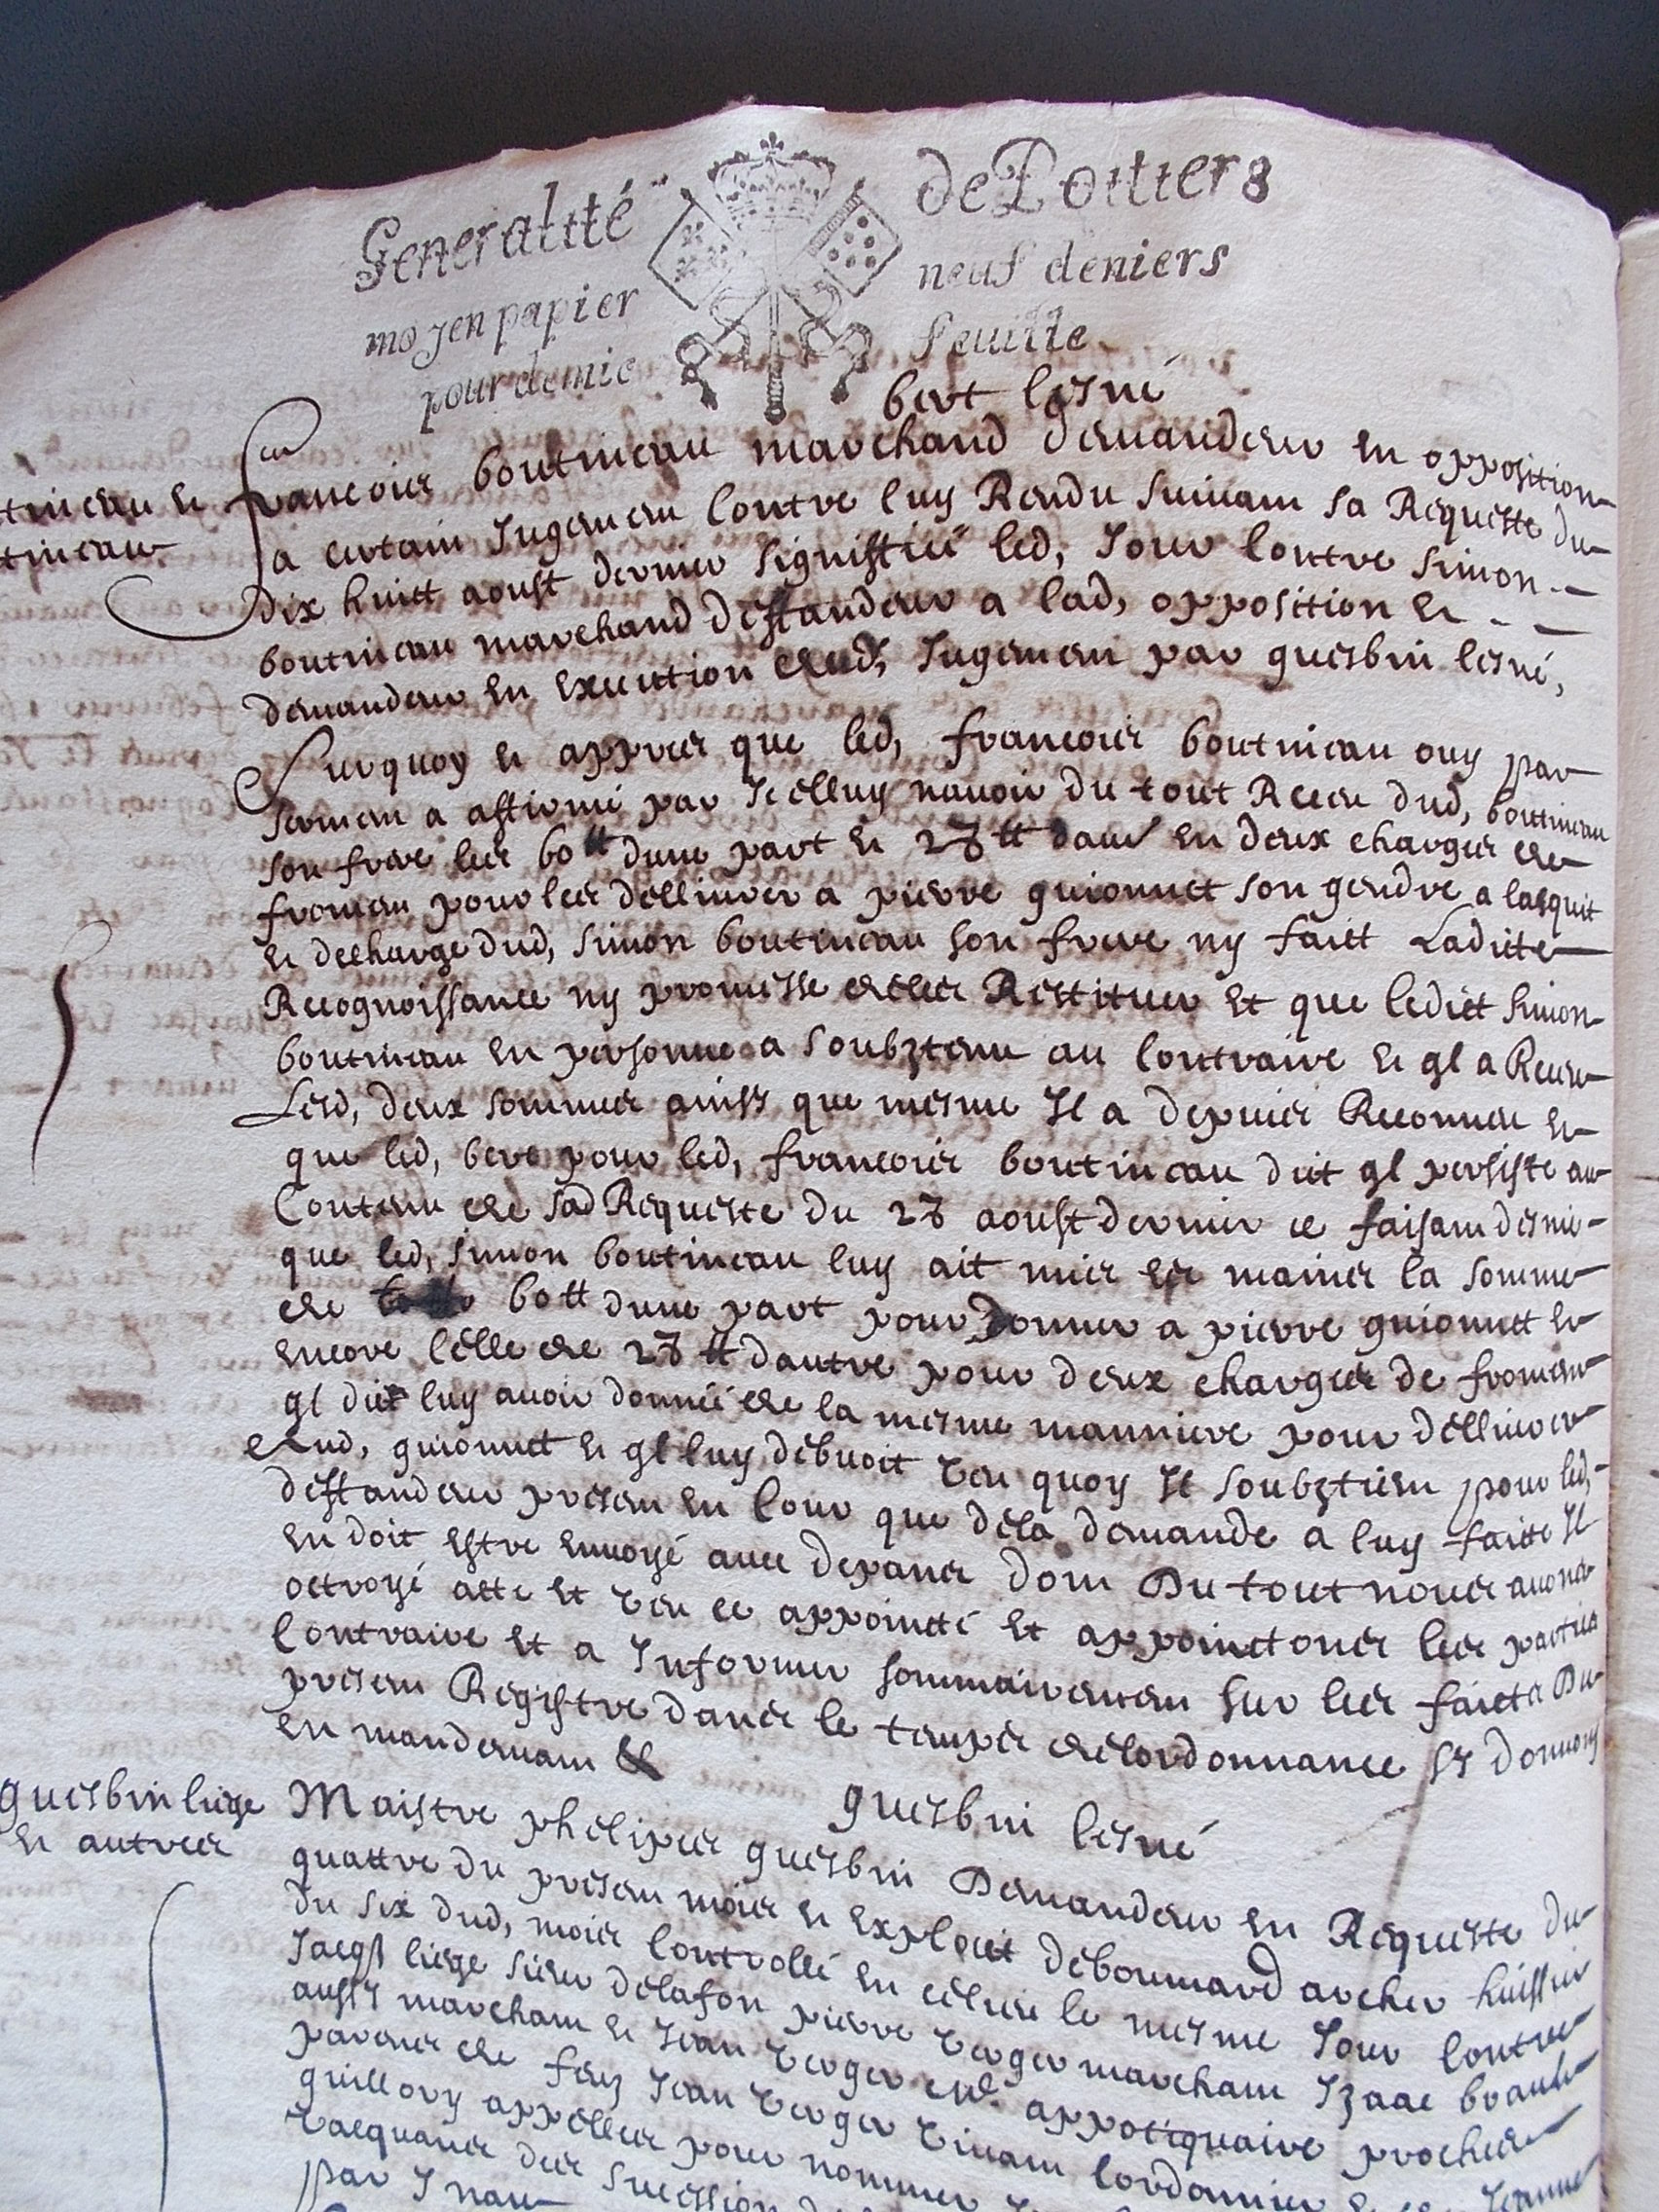 Generalitté de Poitiers
moyen papier neuf deniers
pour demie feuille
bert lesné
tineau et
tineau
francois boutineau marchand demandeur en opposition
a certain Jugement contre luy Rendu suivant sa Requeste du
dix huitt aoust dernier signiffiée led, Jour contre simon
boutineau marchand deffandeur a lad, opposition et
demandeur en execution dud, Jugement par guesbin lesné,
Surquoy et apprès que led, francois boutineau ouy par
serment a affirmé par Icelluy navoir du tout Receu dud, boutineau
son frere les 60 ₶ dune part et 28 ₶ dau en deux charges de
froment pour les dellivrer a pierre guionnet son gendre a lacquit
et decharge dud, simon boutineau son frere ny faitt Laditte
Recognoissance ny promesse de les Restituer et que ledict simon
boutineau en personne a soubztenu au contraire et ql a Receu
Lesd, deux sommes ainsy que mesme Il a depuis Reconnue et
que led, bert pour led, francois boutineau dit ql persiste au
Contenu de sad Requeste du 28 aoust dernier ce faisant desnie
que led, simon boutineau luy ait mis es mains la somme
de 60 ₶ dune part pour donner a pierre guionnett et
encore celle de 28 ₶ dautre pour deux charges de froment
ql dit luy avoir donnée de la mesme manniere pour dellivrer
aud, guionnett et ql luy debvoit veu quoy Il soubztient pour led,
deffandeur present en cour que dela demande a luy faitte Il
en doit estre envoyé avec depans dont Du tout nous avons
octroyé acte et veu ce appointté et appointtons les parties
contraire et a Informer sommairement sur les faicts Du
present Registre dans le temps de lordonnance sy donnons
en mandement &
guesbin lesné
guesbin liege
et autres
Maistre phelipes guesbin Demandeur en Requeste du
quattre du present mois et exploit de bounard archer huissier
du six dud, mois controllé en le mesme Jour contre
Jacqs liege sieur delafon pierre verger marchant Izaac
aussy marchant et Jean verger appotiquaire proches
parens de feu Jean verger vivant cordonnier
guillory appellés pour nommer
vacquans des succession
par